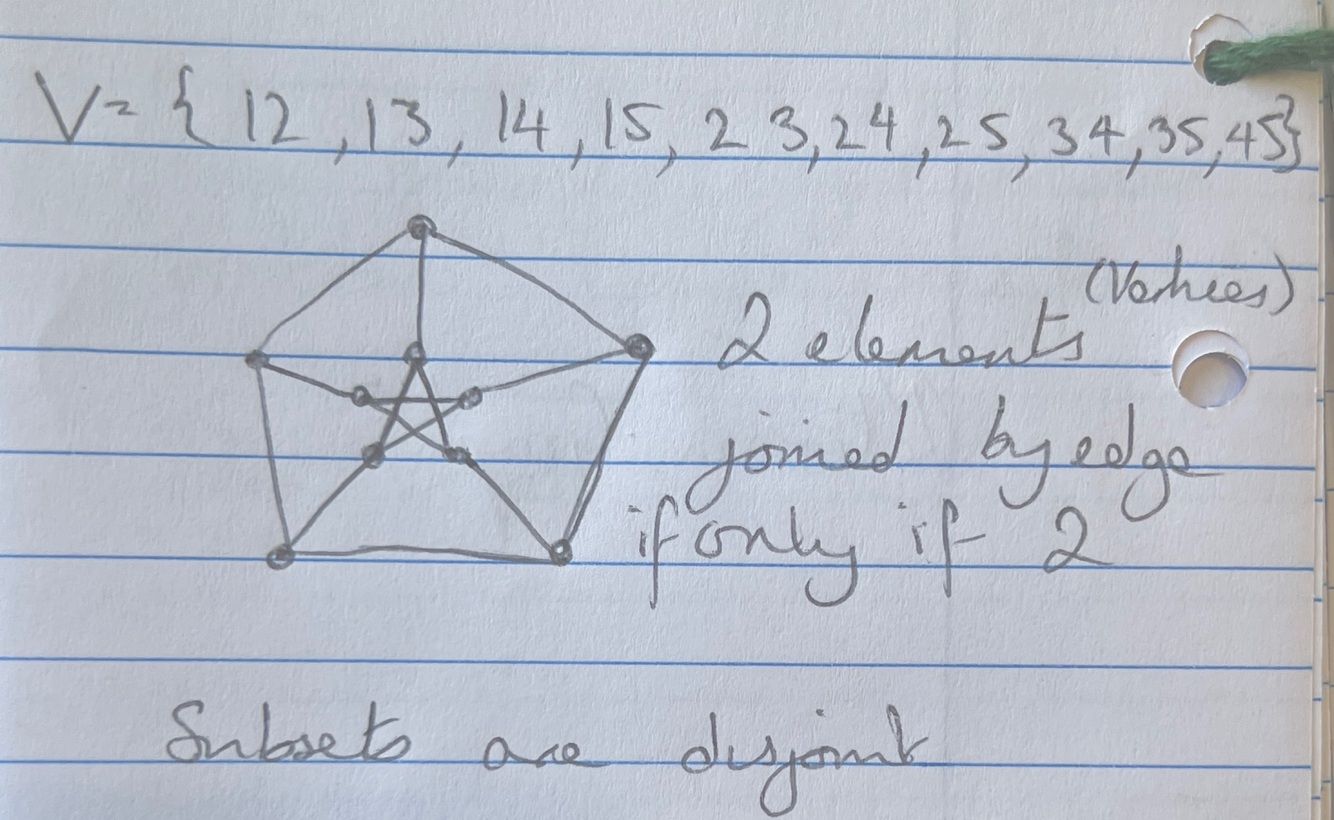 V = { 12 , 13 , 14 , 15 , 23 , 24 , 25 , 34 , 35 , 45 }
(Vertices)
2 elements
joined by edge
if only if 2
Subsets are disjoint